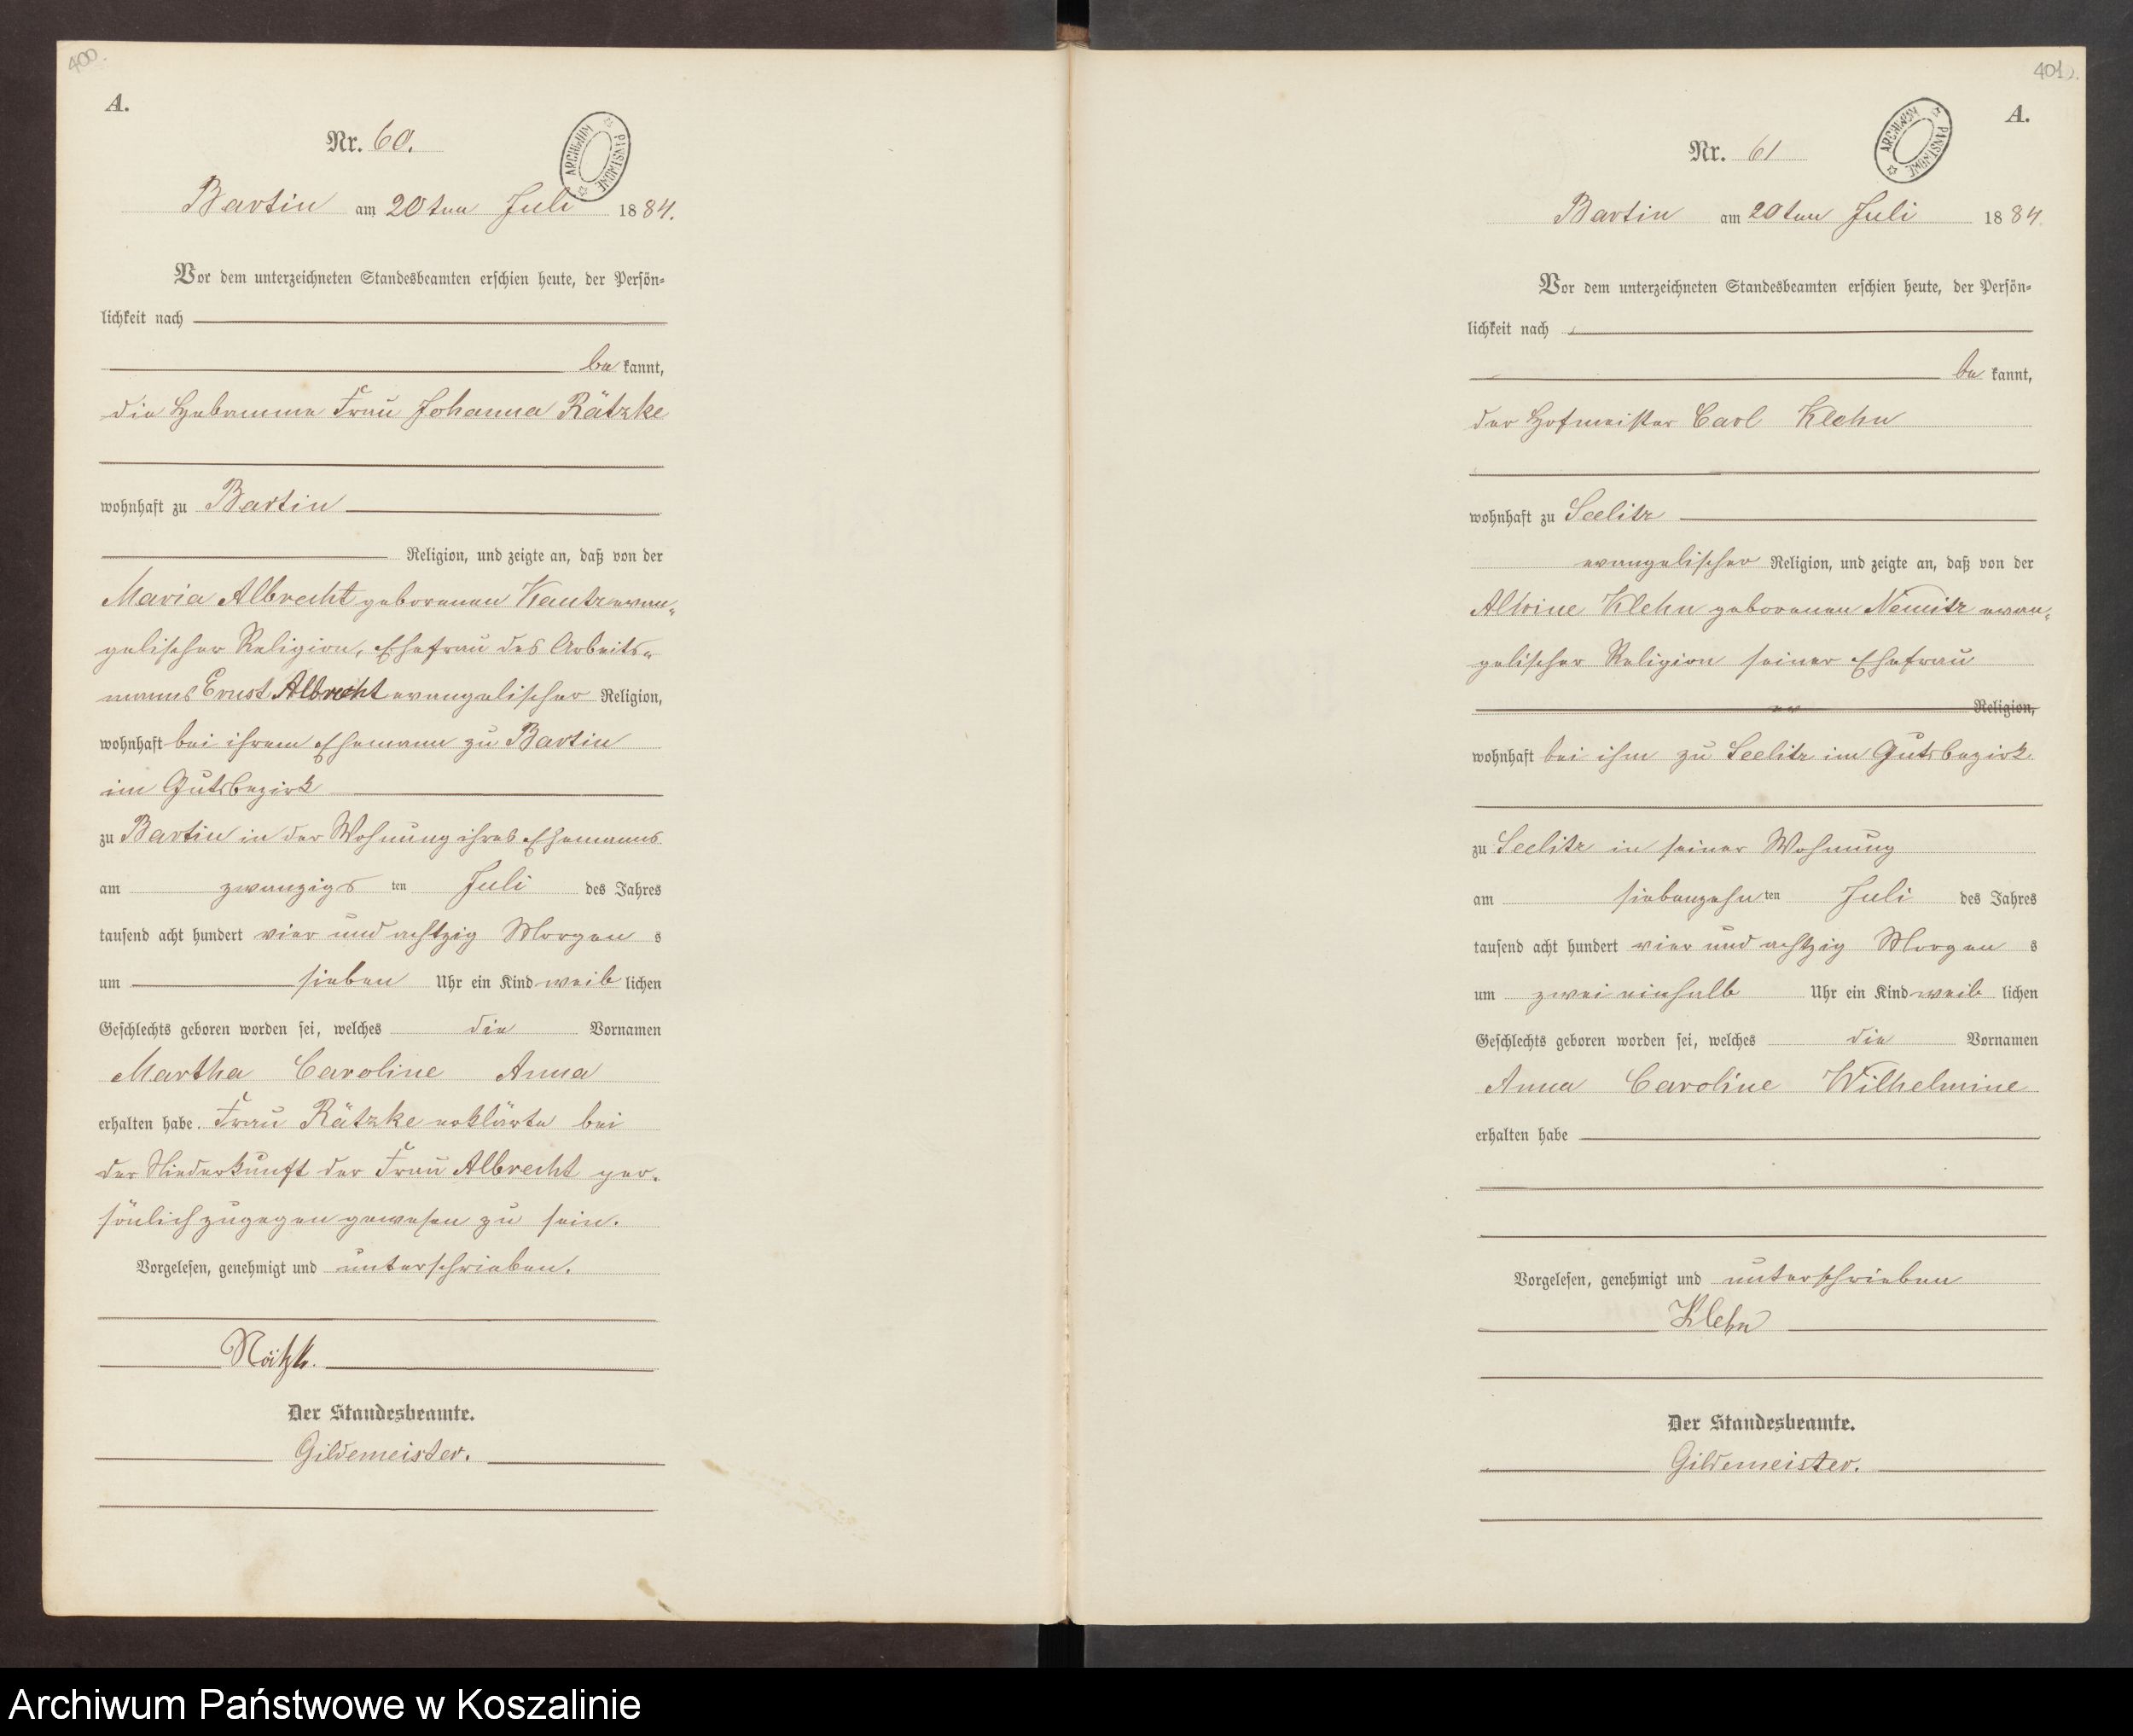 400.
A.
Nr. 60.
ARCHIWUM PAŃSTWOWE
Bartin am 20ten Juli 1884.
Vor dem unterzeichneten Standesbeamten erschien heute, der Persön-
lichkeit nach
bekannt,
die Hebamme Frau Johanna Rätzke
wohnhaft zu Bartin
Religion, und zeigte an, daß von der
Maria Albrecht geborenen Kautz evan-
gelischer Religion, Ehefrau des Arbeits-
manns Ernst Albrecht evangelischer Religion,
wohnhaft bei ihrem Ehemann zu Bartin
im Gutsbezirk
zu Bartin in der Wohnung ihres Ehemanns
am zwanzigsten Juli des Jahres
tausend acht hundert vier und achtzig Morgens
um sieben Uhr ein Kind weiblichen
Geschlechts geboren worden sei, welches die Vornamen
Martha Caroline Anna
erhalten habe. Frau Rätzke erklärte bei
der Niederkunft der Frau Albrecht per-
sönlich zugegen gewesen zu sein.
Vorgelesen, genehmigt und unterschrieben.
Rätzk.
Der Standesbeamte.
Gildemeister.
401.
A.
Nr. 61
ARCHIWUM PAŃSTWOWE
Bartin am 20ten Juli 1884.
Vor dem unterzeichneten Standesbeamten erschien heute, der Persön-
lichkeit nach
bekannt,
der Hofmeister Carl Klehn
wohnhaft zu Seelitz
evangelischer Religion, und zeigte an, daß von der
Alwine Klehn geborenen Nemitz evan-
gelischer Religion seiner Ehefrau
er Religion,
wohnhaft bei ihm zu Seelitz im Gutsbezirk
zu Seelitz in seiner Wohnung
am siebenzehnten Juli des Jahres
tausend acht hundert vier und achtzig Morgens
um zwei einhalb Uhr ein Kind weiblichen
Geschlechts geboren worden sei, welches die Vornamen
Anna Caroline Wilhelmine
erhalten habe
Vorgelesen, genehmigt und unterschrieben
Klehn
Der Standesbeamte.
Gildemeister.
Archiwum Państwowe w Koszalinie